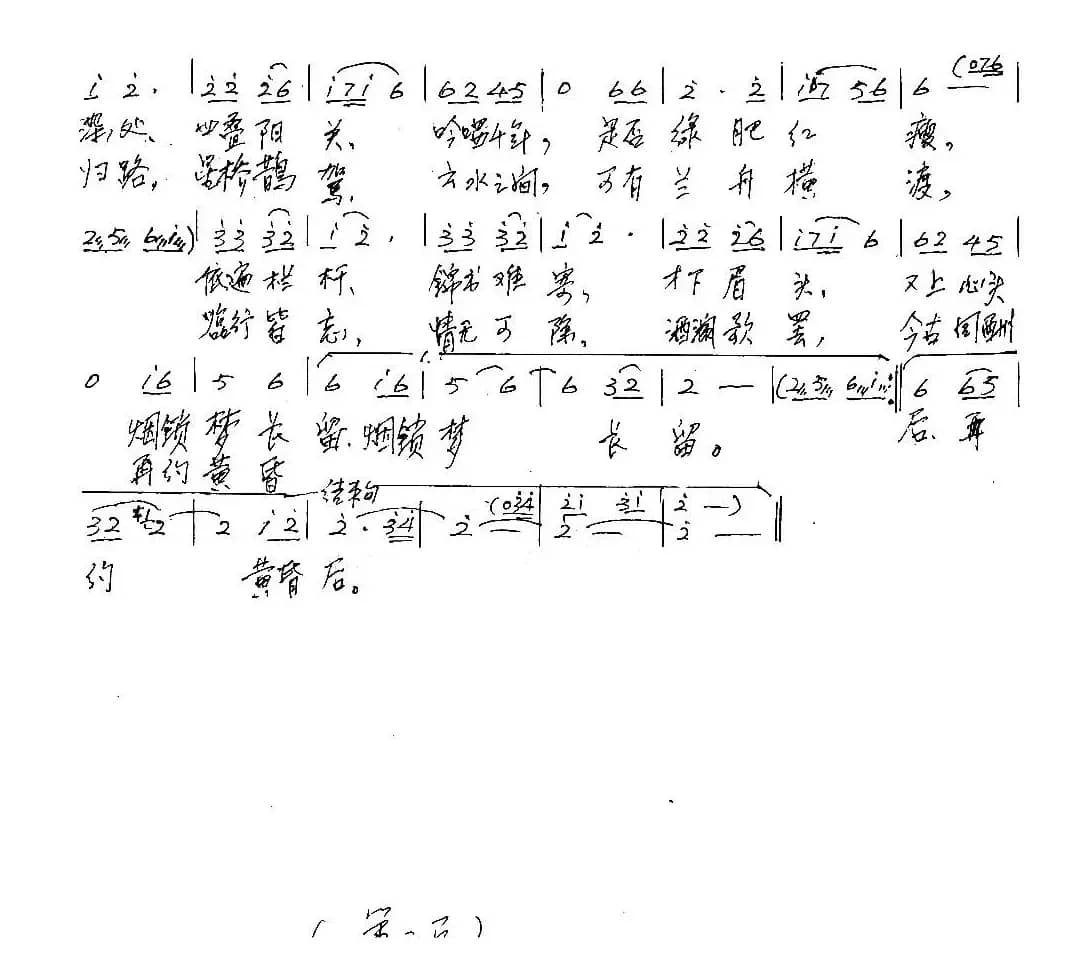 i 2 . | 22 26 | i7i 6 | 62 45 | 0 66 | 2 . 2 | i 56 | 6 (076 |
深处、 叠阳 关、 吟 是否 绿 肥 红 瘦。
归路, 桥鹊 驾, 云水之间, 可有 兰 舟 横 渡,
25 6i) | 33 32 | i 2 . | 33 32 | i 2 . | 22 26 | i7i 6 | 62 45 |
依遍 栏 杆、 锦书 难 寄, 才下 眉 头、 又上 心头
临行 皆 忘, 情无 可 除, 酒 歌 罢, 今古 同酬
0 i6 | 5 6 | 6 i6 | 5 6 | 6 32 | 2 — | (25 6i :|| 6 65 |
烟锁 梦 长 留、烟锁 梦 长 留。 后、再
再约 黄 昏
结束句
32 2 | 2 i2 | 2 . 34 | 2 — (034 | 2i 3i | 2 —) ||
2 — | 2 —
约 黄昏 后。